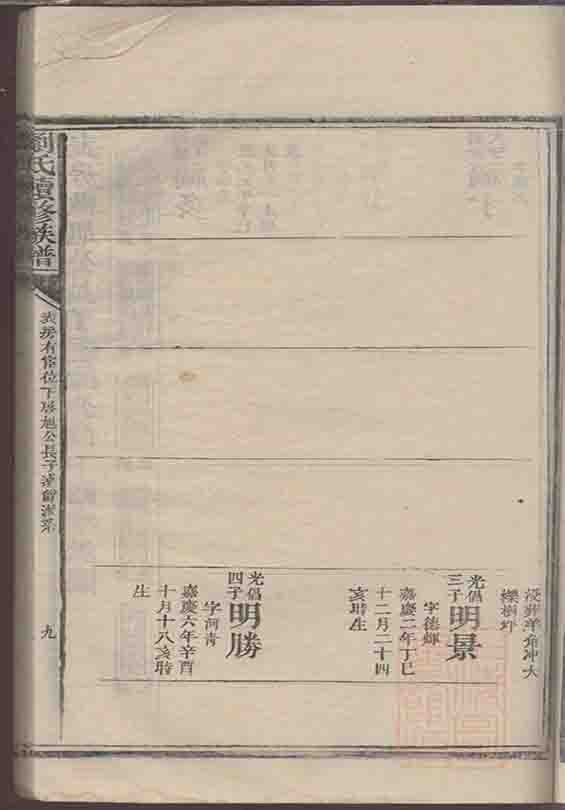 歿葬羊角冲大
櫟樹坪
光倡三子明景
字德輝
嘉慶二年丁巳
十二月二十四
亥時生
光倡四子明勝
字河青
嘉慶六年辛酉
十月十八亥時
生
劉氏續修族譜
房有位下勝旭公長子達曾派系
九